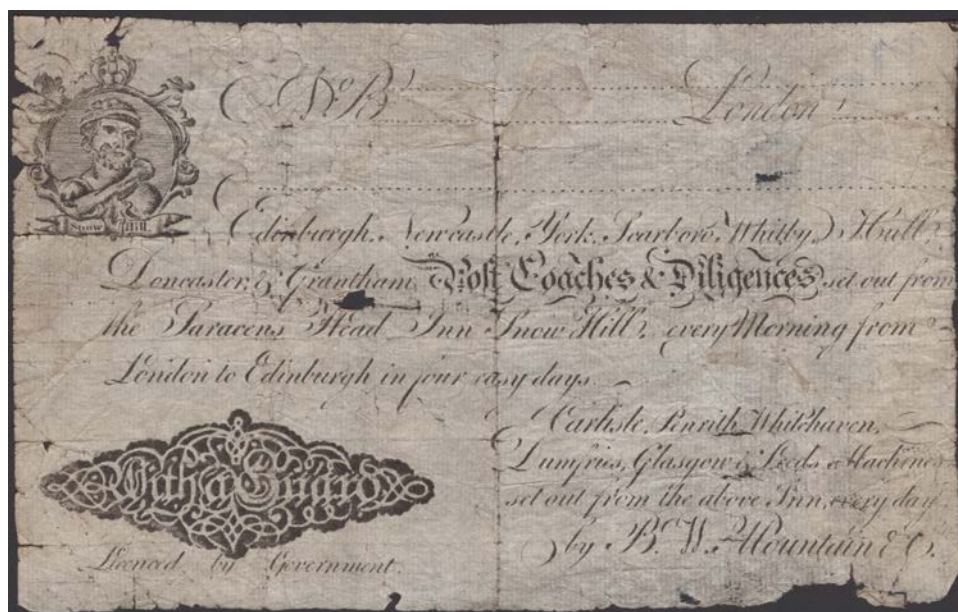 No. B London
Snow Hill
Edinburgh, Newcastle, York, Scarboro, Whitby, Hull,
Doncaster, & Grantham Post Coaches & Diligences set out from
the Saracens Head Inn Snow Hill, every Morning from
London to Edinburgh in four easy days
Carlisle, Penrith, Whitehaven,
Dumfries, Glasgow & Leeds Machines
set out from the above Inn, every day
by B. W. Mountain & Co.
With a Guard
Licenced by Government.